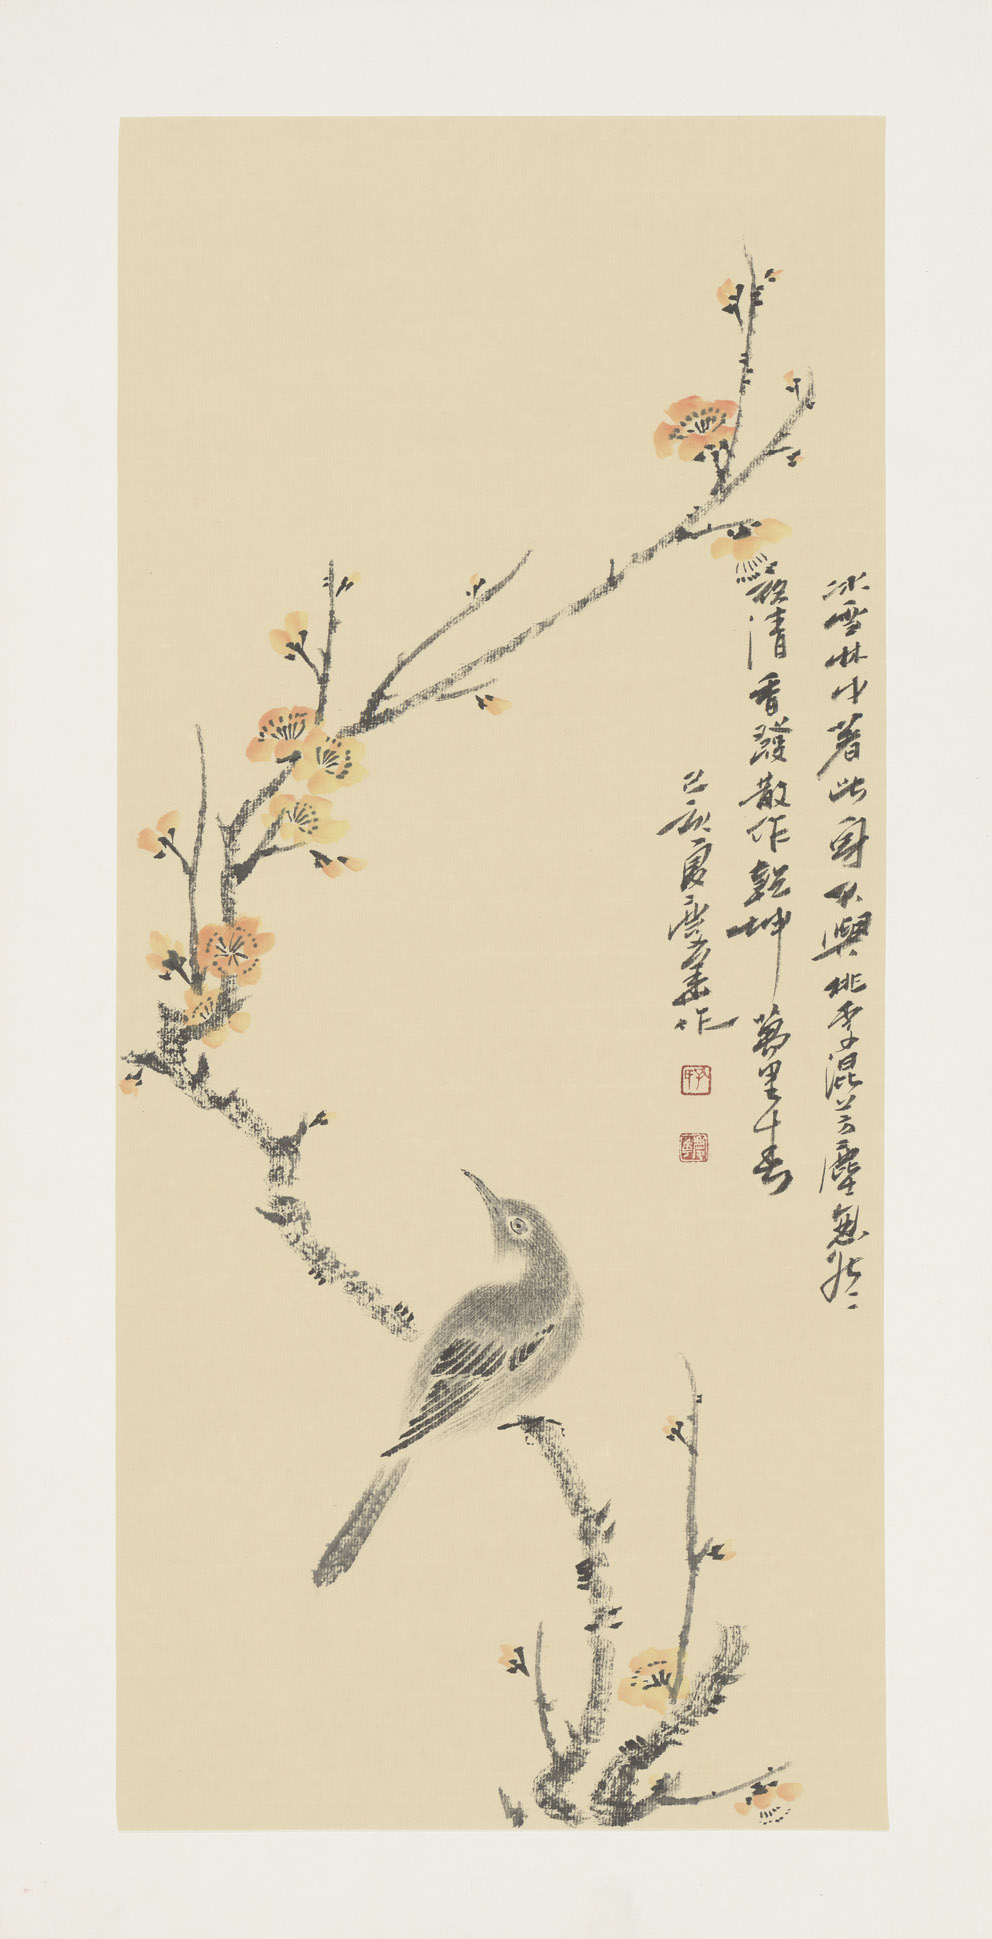 冰雪林中著此身不與桃李混芳塵忽然一
夜清香發散作乾坤萬里春
己亥夏慶華作